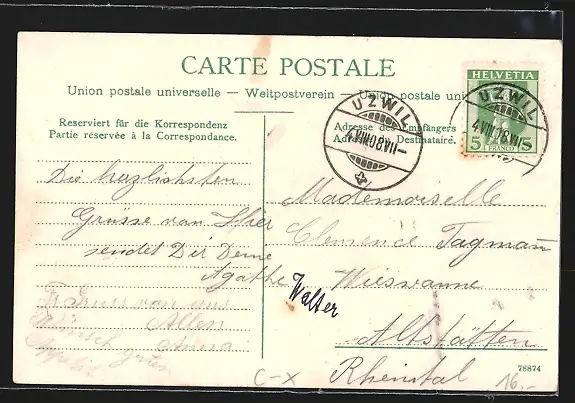 CARTE POSTALE
Union postale universelle — Weltpostverein — Union postale uni
Reserviert für die Korrespondenz
Partie réservée à la Correspondance.
Adresse des Empfängers
Adresse du Destinataire.
HELVETIA
5 5
FRANCO
UZWIL
4.VIII.08.VII
UZWIL
4.VIII.08.VII
Die herzlichsten
Grüsse von Ihier
sendet Dir Deine
Agathe
Gruss von uns
Allen
Anna
Walter
Mademoiselle
Clemence Tagmann
Wieswanne
Altstätten
Rheintal
C-X
16.-
78874